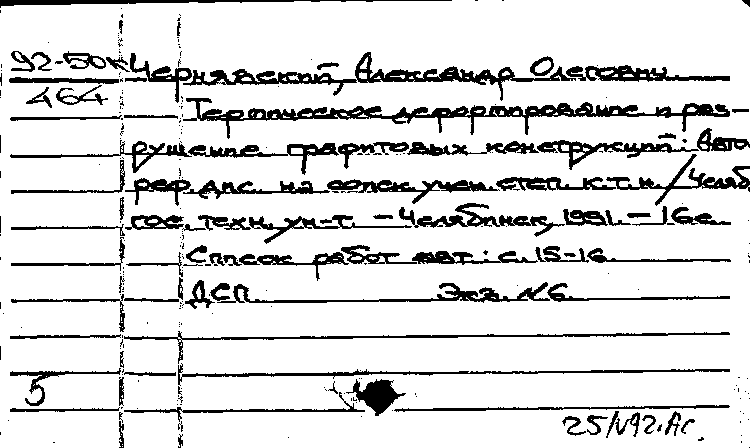 92-50к Чернявский, Александр Олегович.
464
Термическое деформирование и раз-
рушение графитовых конструкций: Авто-
реф. дис. на соиск. учен. степ. к.т.н. / Челяб.
гос. техн. ун-т. – Челябинск, 1991. – 16 с.
Список работ авт.: с. 15-16.
ДСП. Экз. №6.
5
25/V92. Ас.